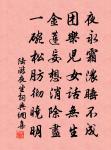 夜永霜濃睡不成
團欒兒女話無生
金蓮妄想消除盡
一碗松肪徹曉明
陸游夜坐詞典網集